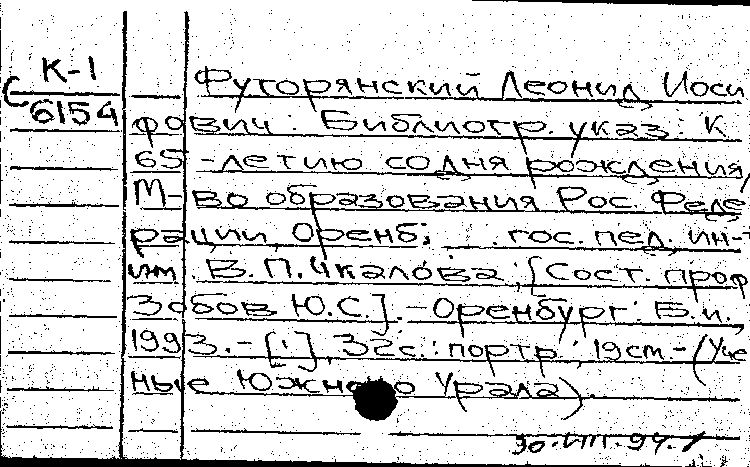 К-1
С 6154
Футорянский Леонид Иоси
фович : Библиогр. указ. : К
65-летию со дня рождения /
М-во образования Рос. Феде
рации, Оренб. гос. пед. ин-т
им. В.П. Чкалова ; [Сост. проф
Зобов Ю.С.]. - Оренбург : Б.и.,
1993. - [1], 32 с. : портр. ; 19 см. - (Уче
ные Южного Урала).
30.VIII.94.